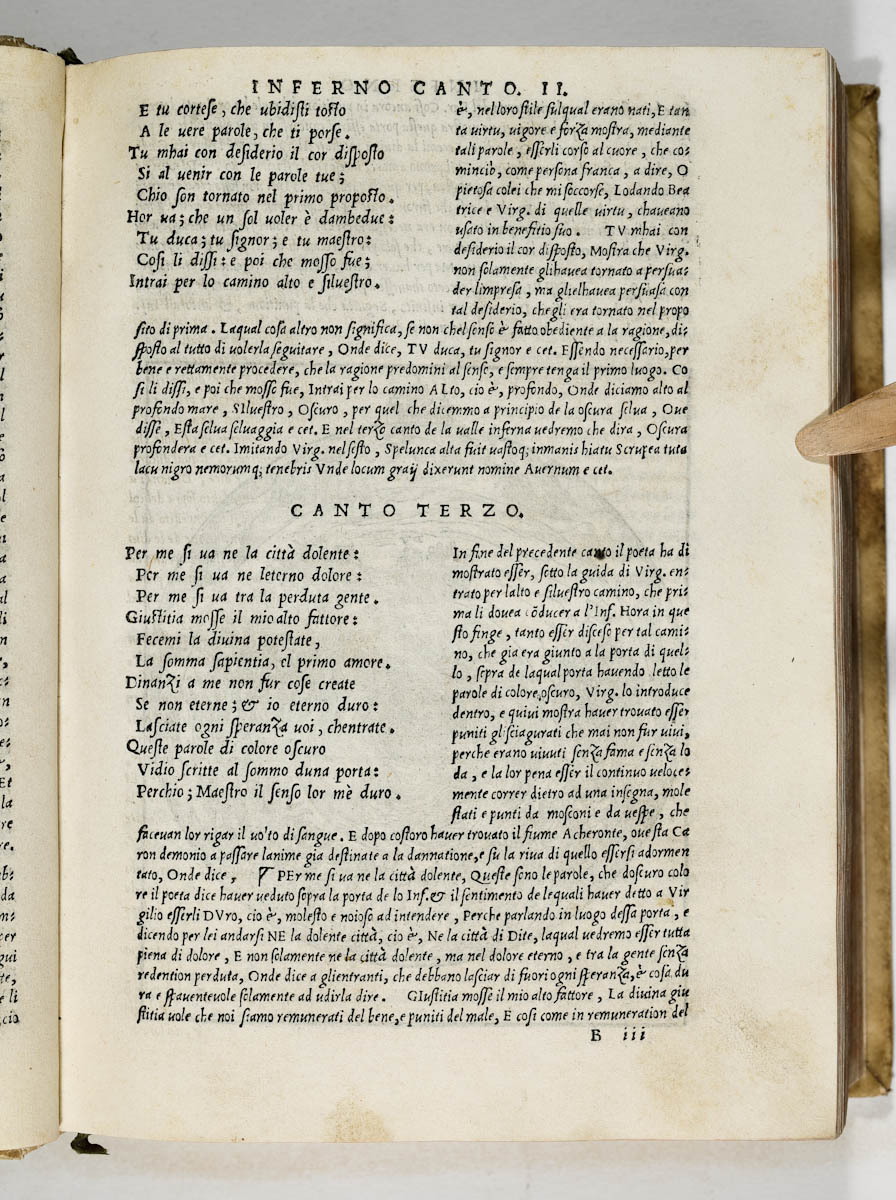 INFERNO CANTO. II.
E tu cortese, che ubidisti tosto
A le vere parole, che ti porse.
Tu mhai con desiderio il cor disposto
Si al venir con le parole tue;
Chio son tornato nel primo proposto.
Hor va; che un sol voler è dambedue:
Tu duca; tu signor; e tu maestro:
Cosi li dissi: e poi che mosso fue;
Intrai per lo camino alto e silvestro.
è, nel loro stile sulqual erano nati, E tan
ta virtu, vigore e forza mostra, mediante
tali parole, esserli corso al cuore, che co-
minciò, come persona franca, a dire, O
pietosa colei che mi soccorse, Lodando Bea
trice e Virg. di quelle virtu, chaveano
usato in benefitio suo. TV mhai con
desiderio il cor disposto, Mostra che Virg.
non solamente glihavea tornato a persua-
der limpresa, ma glielhavea persuasa con
tal desiderio, chegli era tornato nel propo
sito di prima. Laqual cosa altro non significa, se non chel senso è fatto obediente a la ragione, di-
sposto al tutto di volerla seguitare, Onde dice, TV duca, tu signor e cet. Essendo necessario, per
bene e rettamente procedere, che la ragione predomini al senso, e sempre tenga il primo luogo. Co
si li dissi, e poi che mosso fue, Intrai per lo camino ALto, cio è, profondo, Onde diciamo alto al
profondo mare, SIluestro, Oscuro, per quel che dicemmo a principio de la oscura selva, Oue
disse, Esta selva selvaggia e cet. E nel terzo canto de la valle inferna vedremo che dira, Oscura
profondera e cet. Imitando Virg. nel sesto, Spelunca alta fuit vastoq; inmanis hiatu Scrupea tuta
lacu nigro nemorumq; tenebris Vnde locum graij dixerunt nomine Avernum e cet.
CANTO TERZO.
Per me si va ne la città dolente:
Per me si va ne leterno dolore:
Per me si va tra la perduta gente.
Giustitia mosse il mio alto fattore:
Fecemi la divina potestate,
La somma sapientia, el primo amore.
Dinanzi a me non fur cose create
Se non eterne; & io eterno duro:
Lasciate ogni speranza voi, chentrate.
Queste parole di colore oscuro
Vidio scritte al sommo duna porta:
Perchio; Maestro il senso lor mè duro.
In fine del precedente canto il poeta ha di
mostrato esser, sotto la guida di Virg. en-
trato per lalto e silvestro camino, che pri-
ma li dovea cōducer a l'Inf. Hora in que
sto finge, tanto esser disceso per tal cami-
no, che gia era giunto a la porta di quel-
lo, sopra de laqual porta havendo letto le
parole di colore oscuro, Virg. lo introduce
dentro, e quivi mostra haver trovato esser
puniti gli sciagurati che mai non fur vivi,
perche erano vivuti senza fama e senza lo
da, e la lor pena esser il continuo veloce-
mente correr dietro ad una insegna, mole
stati e punti da mosconi e da vespe, che
facevan lor rigar il volto di sangue. E dopo costoro haver trovato il fiume Acheronte, ove sta Ca
ron demonio a passare lanime gia destinate a la dannatione, e su la riva di quello essersi adormen
tato, Onde dice, PEr me si va ne la città dolente, Queste sono le parole, che doscuro colo
re il poeta dice haver veduto sopra la porta de lo Inf. & il sentimento de lequali haver detto a Vir
gilio esserli DVro, cio è, molesto e noioso ad intendere, Perche parlando in luogo dessa porta, e
dicendo per lei andarsi NE la dolente città, cio è, Ne la città di Dite, laqual vedremo esser tutta
piena di dolore, E non solamente ne la città dolente, ma nel dolore eterno, e tra la gente senza
redention perduta, Onde dice a glientranti, che debbano lasciar di fuori ogni speranza, è cosa du
ra e spaventevole solamente ad udirla dire. GIustitia mosse il mio alto fattore, La divina giu
stitia vole che noi siamo remunerati del bene, e puniti del male, E cosi come in remuneration del
B iii